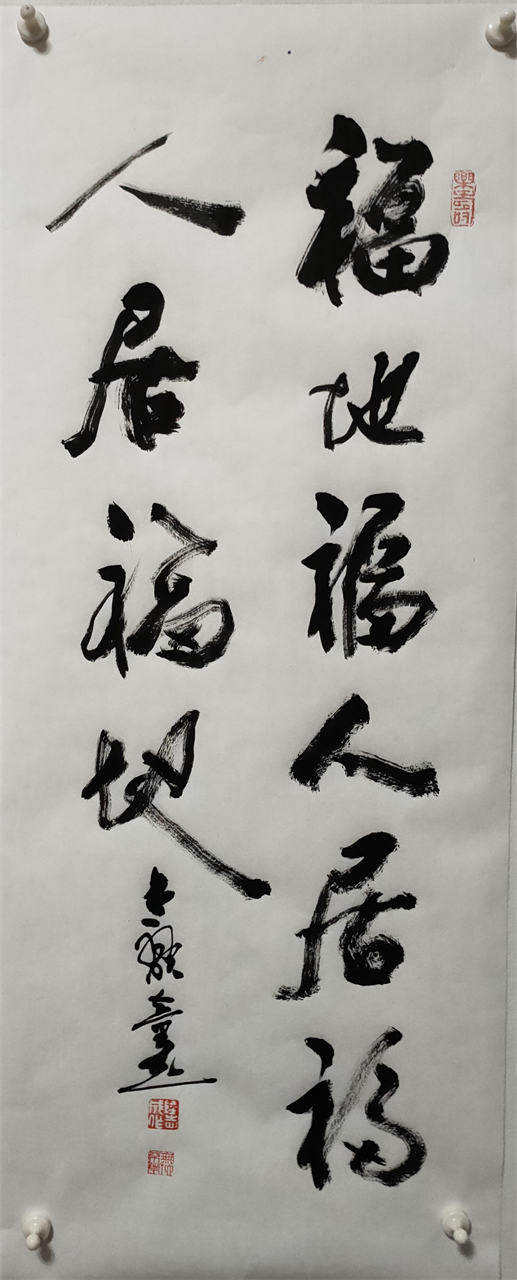 福地福人居福
人居福地